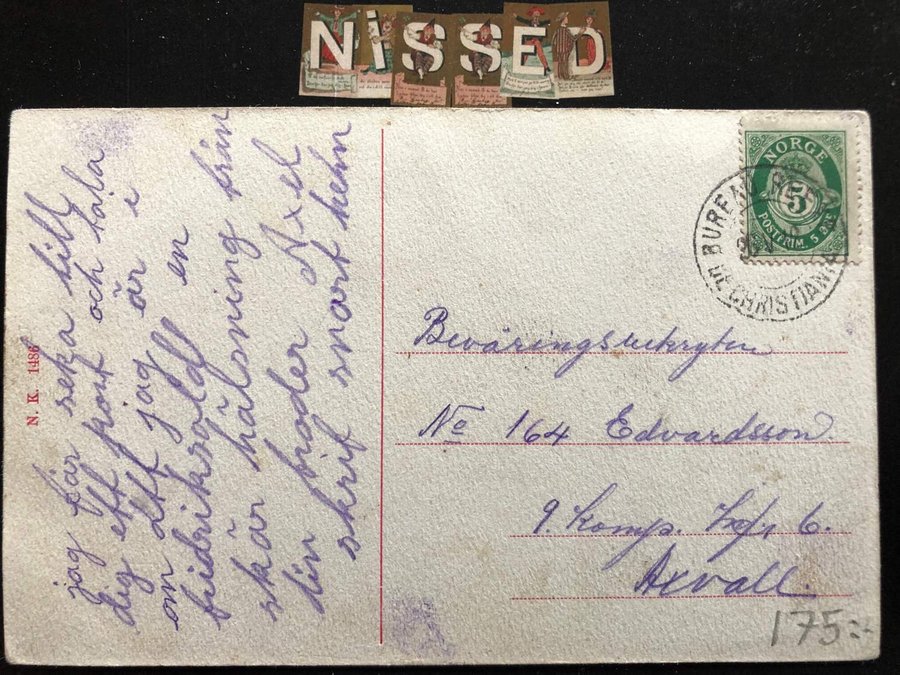 NiSSED
jag får seka till
dig ett kort och tala
om att jag är i
fridriksald en
skär hälsning från
din broder Axel
skrif snart hem
N. K. 1486
NORGE
5
POSTFRIM. 5 ØRE
BUREAU
DE CHRISTIANIA
Beväringsrekryten
No 164 Edvardsson.
9. Komp. 6.
Axvall.
175:-